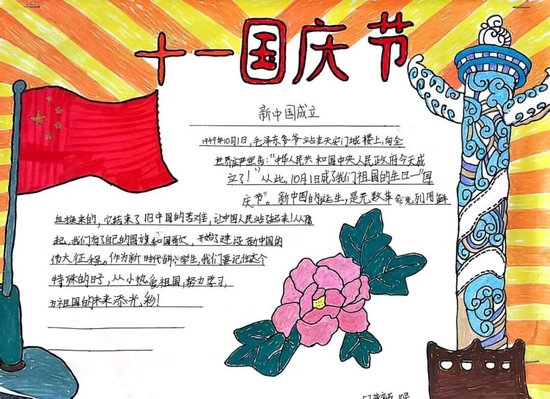 十一国庆节
新中国成立
1949年10月1日,毛泽东爷爷站在天安门城楼上,向全
世界庄严宣告:"中华人民共和国中央人民政府今天成
立了!"从此,10月1日成了我们祖国的生日—"国
庆节"。新中国的诞生,是无数革命先烈用鲜
血换来的,它结束了旧中国的苦难,让中国人民站起来!从
起,我们有了自己的国旗和国歌,开始了建设新中国的
伟大征程。作为新时代的小学生,我们要记住这个
特殊的日子,从小热爱祖国,努力学习,
为祖国的未来添光彩!